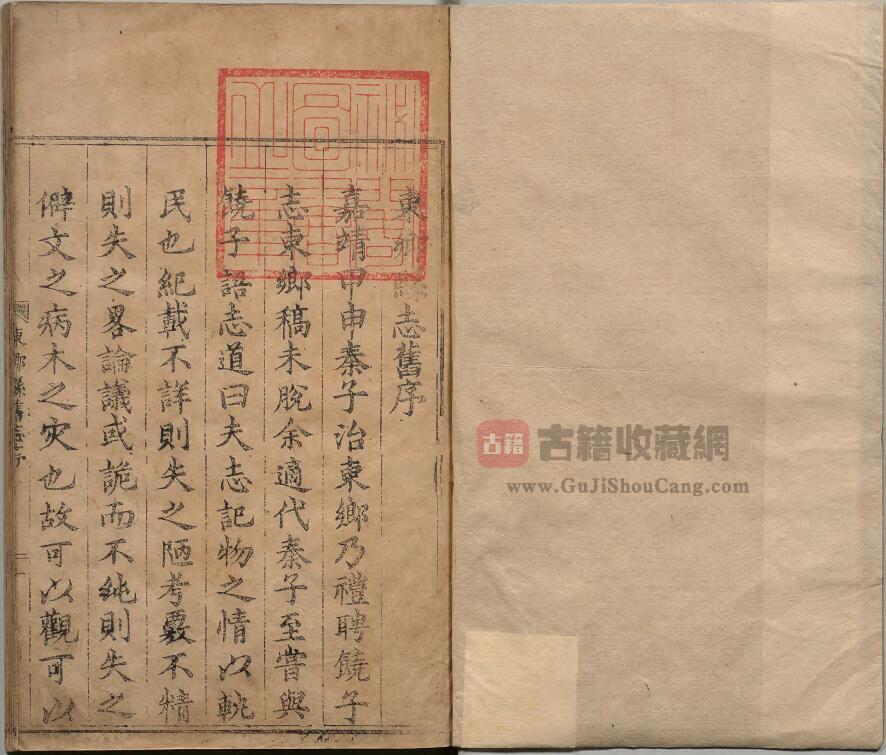 東鄉縣志舊序
嘉靖甲申秦子治東鄉乃禮聘饒子
志東鄉稿未脫余適代秦子至嘗與
饒子語志道曰夫志記物之情以軌
民也紀載不詳則失之陋考覈不精
則失之畧論議或詭而不純則失之
僻文之病木之灾也故可以觀可以
東鄉縣舊志序
古籍
古籍收藏網
www.GuJiShouCang.com